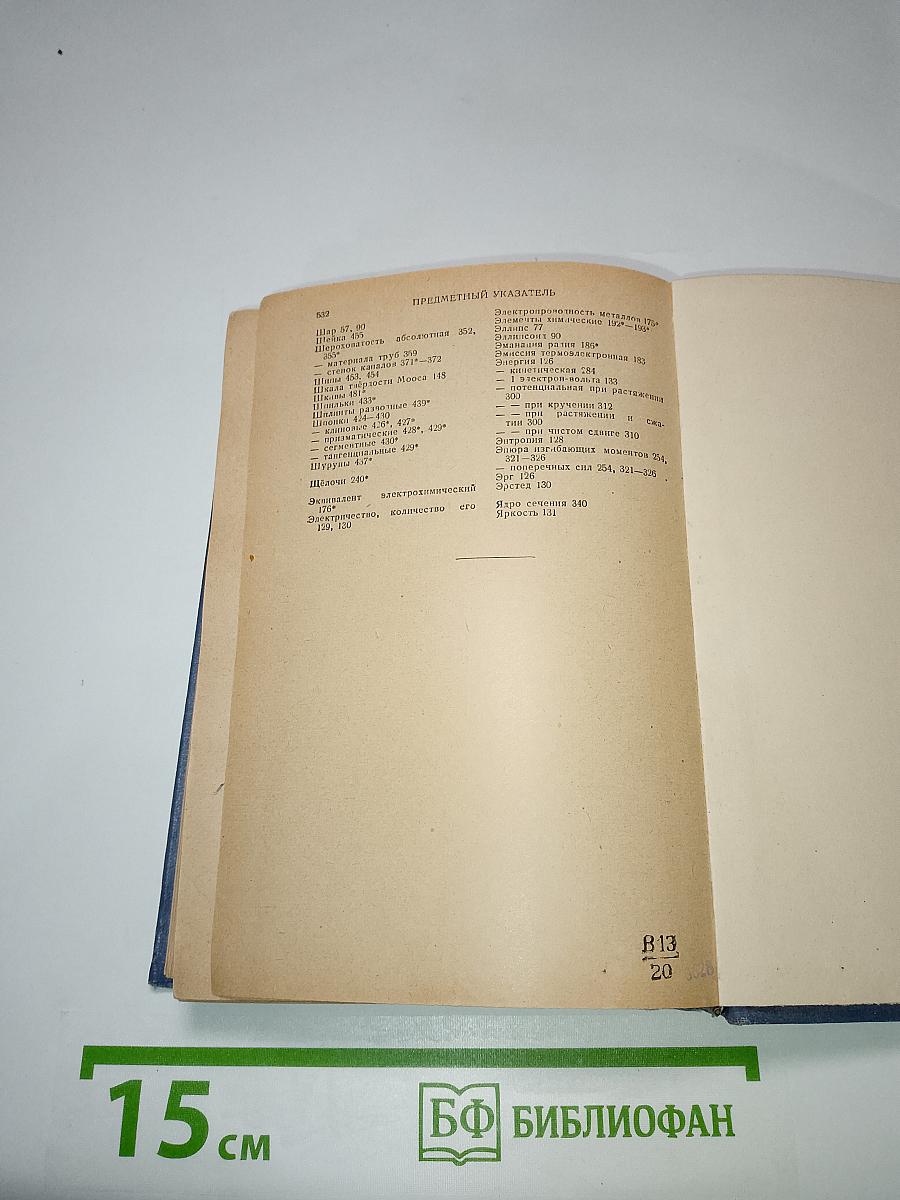 532
ПРЕДМЕТНЫЙ УКАЗАТЕЛЬ
Шар 57, 90
Шейка 455
Шероховатость абсолютная 352,
355*
— материала труб 359
— стенок каналов 371*—372
Шипы 453, 454
Шкала твёрдости Мооса 148
Шкивы 481*
Шпильки 433*
Шплинты разводные 439*
Шпонки 424—430
— клиновые 426*, 427*
— призматические 428*, 429*
— сегментные 430*
— тангенциальные 429*
Шурупы 437*
Щёлочи 240*
Эквивалент электрохимический
176*
Электричество, количество его
129, 130
Электропроводность металлов 175*
Элементы химические 192*—193*
Эллипс 77
Эллипсоид 90
Эманация радия 186*
Эмиссия термоэлектронная 183
Энергия 126
— кинетическая 284
— 1 электрон-вольта 133
— потенциальная при растяжении
300
— — при кручении 312
— — при растяжении и сжа-
тии 300
— — при чистом сдвиге 310
Энтропия 128
Эпюра изгибающих моментов 254,
321—326
— поперечных сил 254, 321—326
Эрг 126
Эрстед 130
Ядро сечения 340
Яркость 131
В 13
20
15 см
БФ БИБЛИОФАН